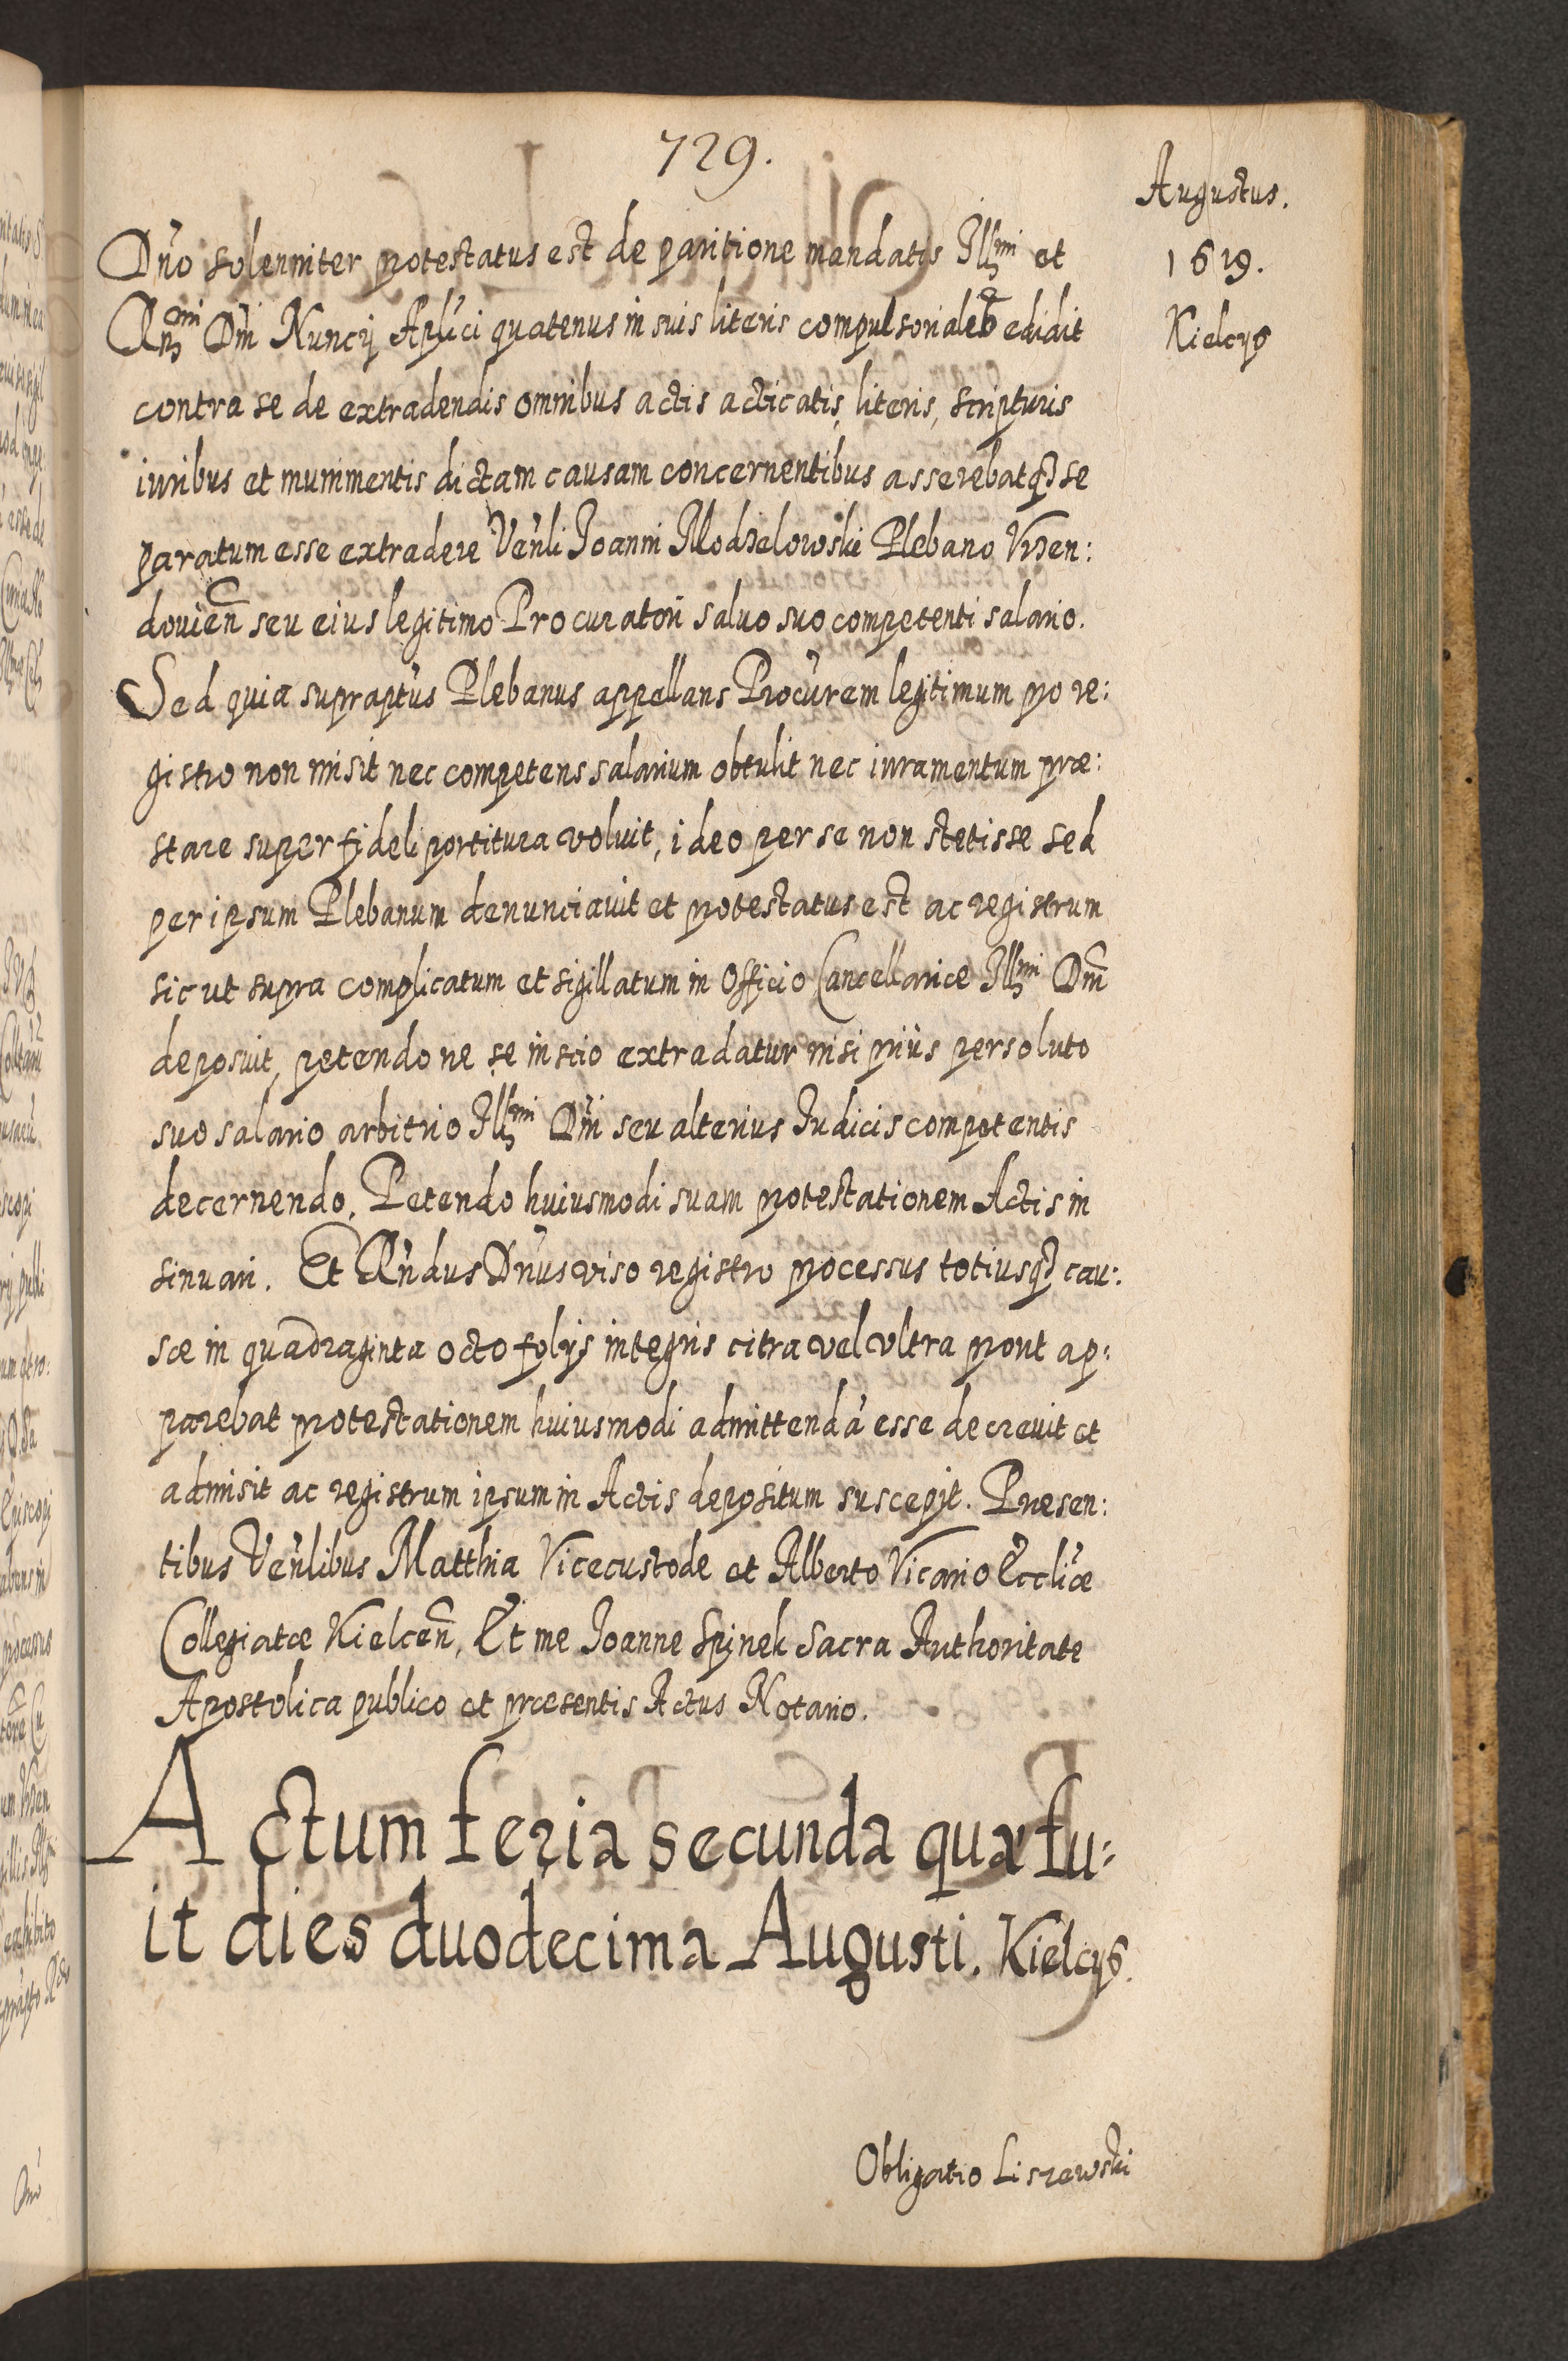 729.
Augustus.
1619.
Kielcys
Dño solenniter protestatus est de paritione mandatis Illmi et
Rmi Dñi Nuncij Aplici quatenus in suis literis compulsorialeb9 edidit
contra se de extradendis omnibus actis acticatis, literis, scripturis
iuribus et munimentis dictam causam concernentibus asserebatq3 se
paratum esse extradere Venli Joanni Modzelowski Plebano Vrzen:
douien seu eius legitimo Procuratori saluo suo competenti salario.
Sed quia supraptus Plebanus appellans Procurem legitimum pro re:
gistro non misit nec competens salarium obtulit nec iuramentum præ:
stare super fideli portitura voluit, ideo per se non stetisse sed
per ipsum Plebanum denunciauit et protestatus est ac registrum
sic ut supra complicatum et sigillatum in Officio Cancellariæ Illmi Dni
deposuit, petendo ne se inscio extradatur nisi prius persoluto
suo salario arbitrio Illmi Dñi seu alterius Iudicis competentis
decernendo. Petendo huiusmodi suam protestationem Actis in
sinuari. Et Rñdus Dñus viso registro processus totiusq3 cau:
sæ in quadraginta octo folijs integris citra vel vltra prout ap:
parebat protestationem huiusmodi admittendá esse decreuit et
admisit ac registrum ipsum in Actis depositum suscepit. Præsen:
tibus Venlibus Matthia Vicecustode et Alberto Vicario Eccliæ
Collegiatæ Kielcen, Et me Joanne Spinek Sacra Authoritate
Apostolica publico et præsentis Actus Notario.
Actum feria secunda quæ fu:
it dies duodecima Augusti. Kielcys.
Obligatio Liszewski